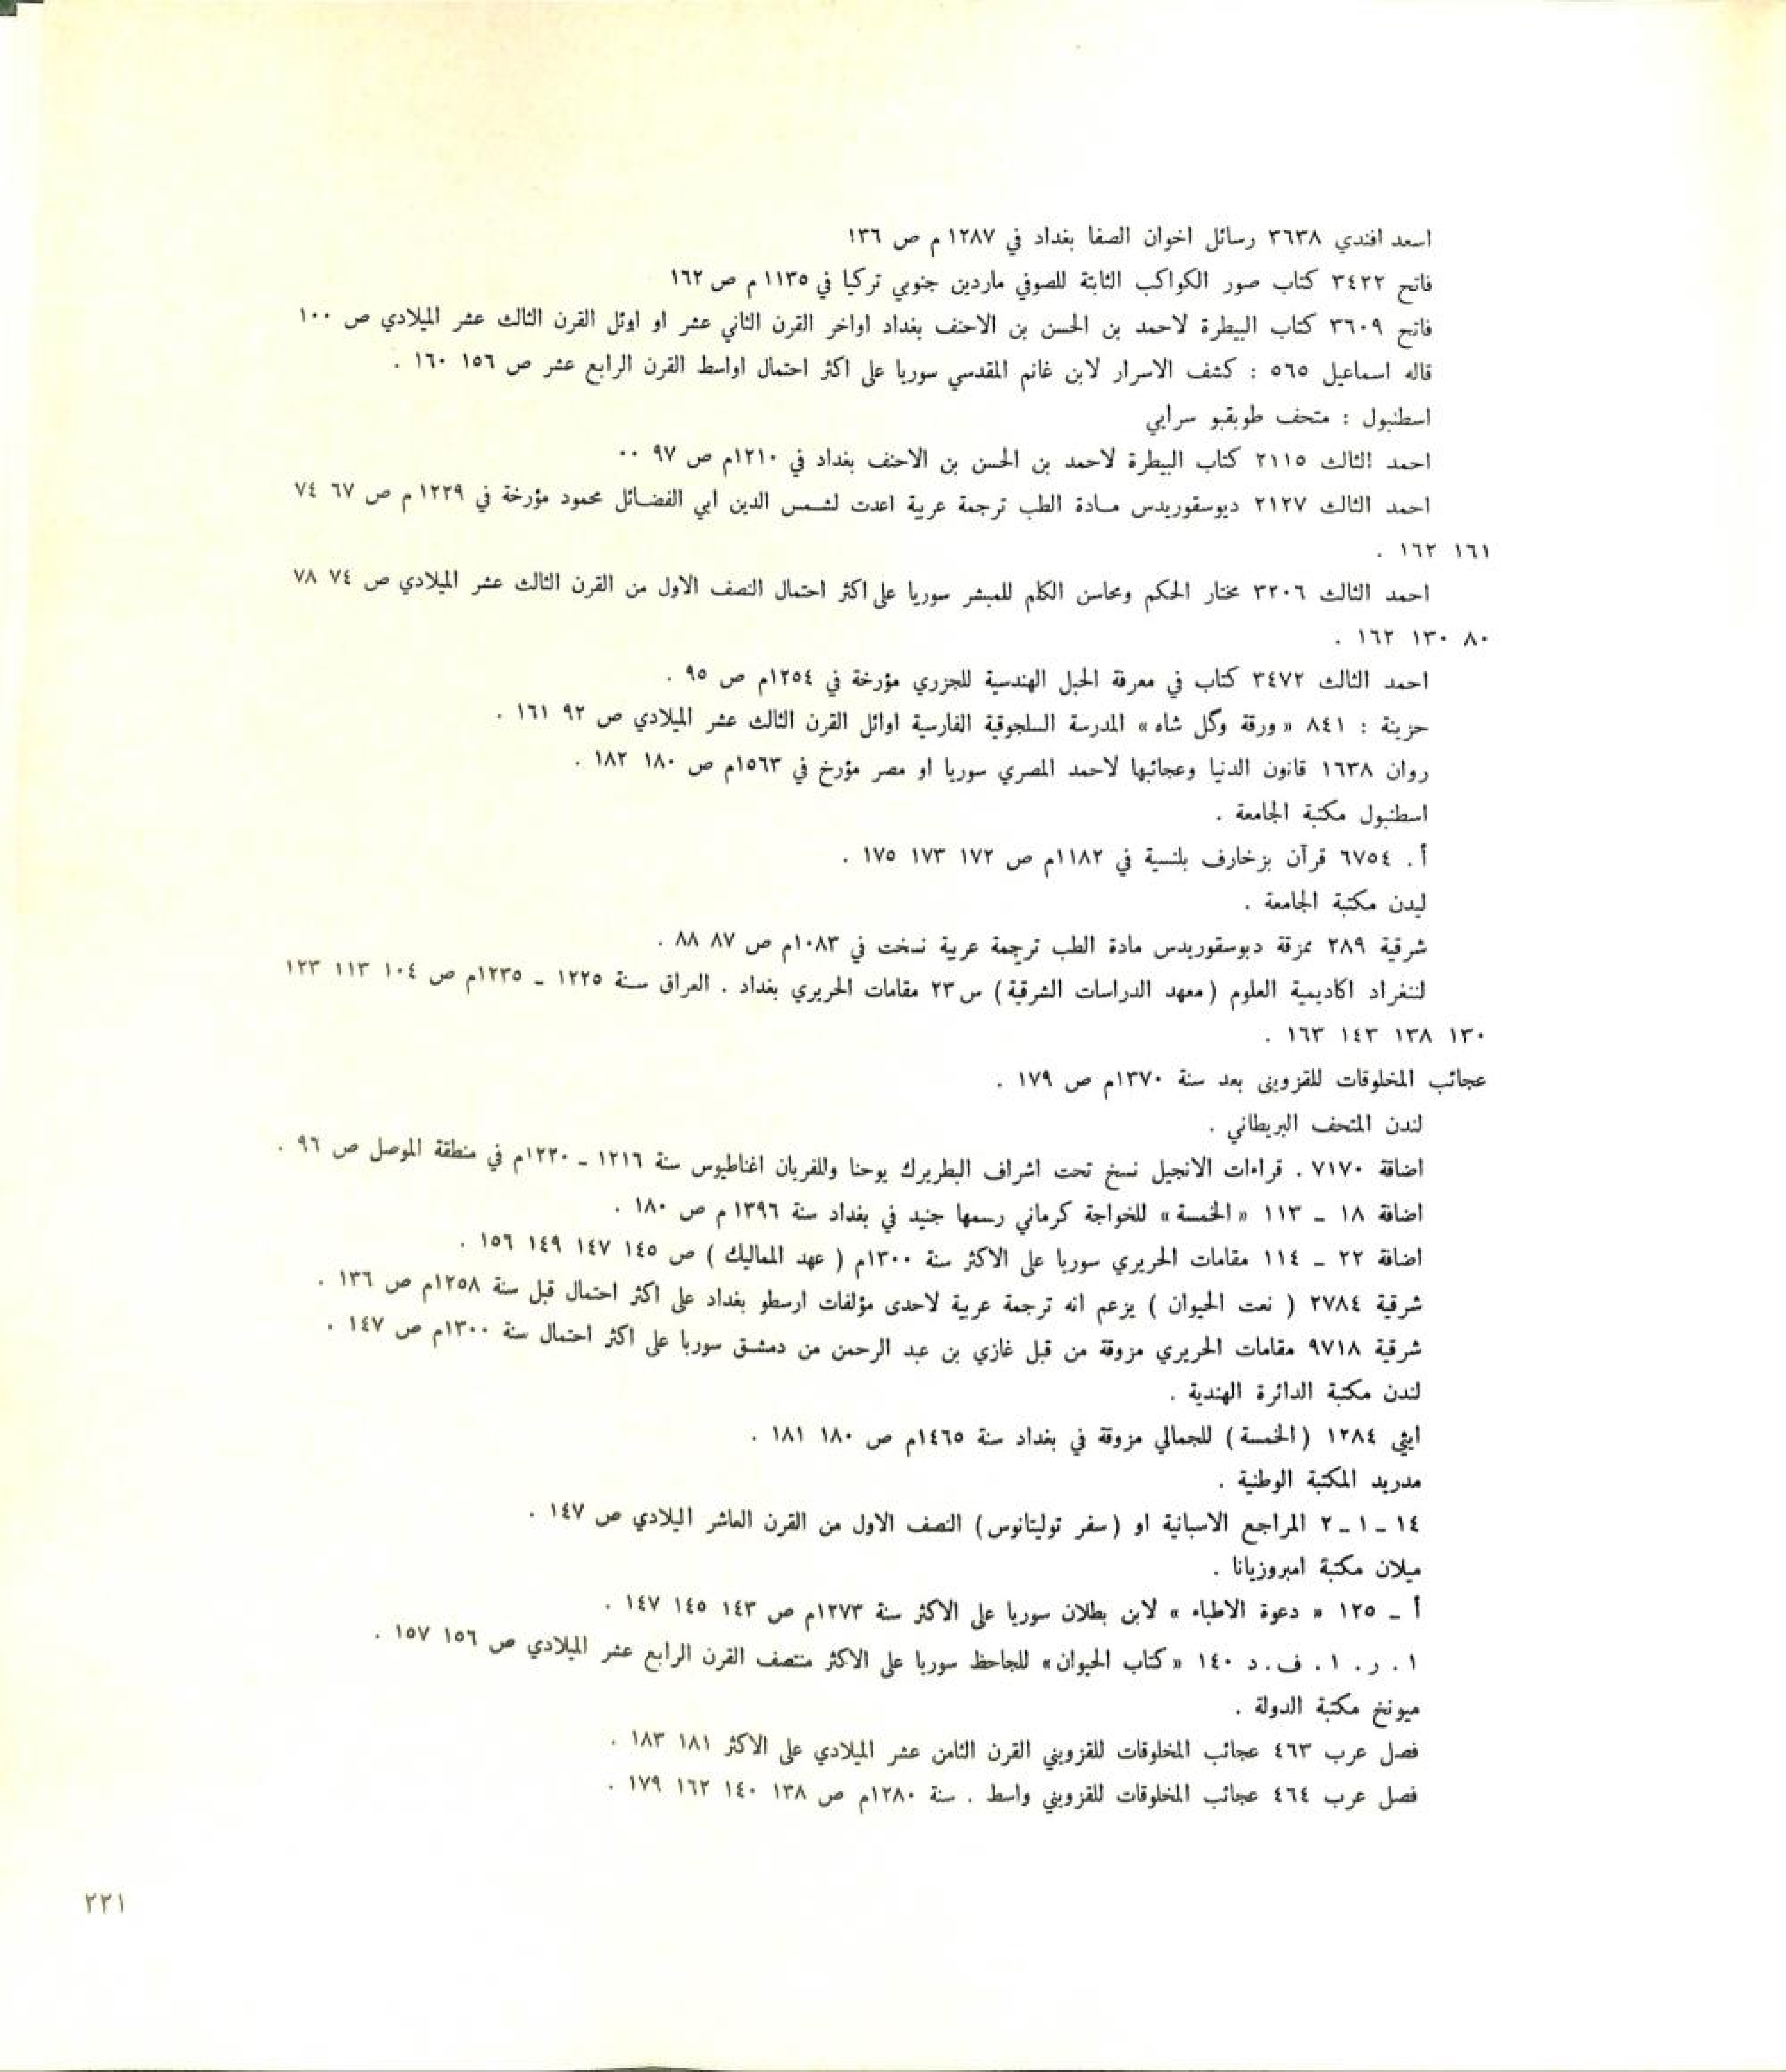 اسعد افندي ٣٦٣٨ رسائل اخوان الصفا بغداد في ١٢٨٧ م ص ١٣٦
فاتح ٣٤٢٢ كتاب صور الكواكب الثابتة للصوفي ماردين جنوبي تركيا في ١١٣٥ م ص ١٦٢
فاتح ٣٦٠٩ كتاب البيطرة لاحمد بن الحسن بن الاحنف بغداد اواخر القرن الثاني عشر او اوئل القرن الثالث عشر الميلادي ص ١٠٠
قاله اسماعيل ٥٦٥ : كشف الاسرار لابن غانم المقدسي سوريا على اكثر احتمال اواسط القرن الرابع عشر ص ١٥٦ ١٦٠ .
اسطنبول : متحف طوبقبو سرايي
احمد الثالث ٢١١٥ كتاب البيطرة لاحمد بن الحسن بن الاحنف بغداد في ١٢١٠م ص ٩٧ ..
احمد الثالث ٢١٢٧ ديوسقوريدس مادة الطب ترجمة عربية اعدت لشمس الدين ابي الفضائل محمود مؤرخة في ١٢٢٩ م ص ٦٧ ٧٤
١٦١ ١٦٢ .
احمد الثالث ٣٢٠٦ مختار الحكم ومحاسن الكلم للمبشر سوريا على اكثر احتمال النصف الاول من القرن الثالث عشر الميلادي ص ٧٤ ٧٨
٨٠ ١٣٠ ١٦٢ .
احمد الثالث ٣٤٧٢ كتاب في معرفة الحيل الهندسية للجزري مؤرخة في ١٢٥٤م ص ٩٥ .
حزينة : ٨٤١ « ورقة وگل شاه » المدرسة السلجوقية الفارسية اوائل القرن الثالث عشر الميلادي ص ٩٢ ١٦١ .
روان ١٦٣٨ قانون الدنيا وعجائبها لاحمد المصري سوريا او مصر مؤرخ في ١٥٦٣م ص ١٨٠ ١٨٢ .
اسطنبول مكتبة الجامعة .
أ . ٦٧٥٤ قرآن بزخارف بلنسية في ١١٨٢م ص ١٧٢ ١٧٣ ١٧٥ .
ليدن مكتبة الجامعة .
شرقية ٢٨٩ مزقة ديوسقوريدس مادة الطب ترجمة عربية نسخت في ١٠٨٣م ص ٨٧ ٨٨ .
لننغراد اكاديمية العلوم (معهد الدراسات الشرقية) س ٢٣ مقامات الحريري بغداد . العراق سنة ١٢٢٥ ـ ١٢٣٥م ص ١٠٤ ١١٣ ١٢٣
١٣٠ ١٣٨ ١٤٣ ١٦٣ .
عجائب المخلوقات للقزويني بعد سنة ١٣٧٠م ص ١٧٩ .
لندن المتحف البريطاني .
اضافة ٧١٧٠ . قراءات الانجيل نسخ تحت اشراف البطريرك يوحنا وللفريان اغناطيوس سنة ١٢١٦ ـ ١٢٢٠م في منطقة الموصل ص ٩٦ .
اضافة ١٨ ـ ١١٣ « الخمسة » للخواجة كرماني رسمها جنيد في بغداد سنة ١٣٩٦ م ص ١٨٠ .
اضافة ٢٢ ـ ١١٤ مقامات الحريري سوريا على الاكثر سنة ١٣٠٠م ( عهد المماليك ) ص ١٤٥ ١٤٧ ١٤٩ ١٥٦ .
شرقية ٢٧٨٤ ( نعت الحيوان ) يزعم انه ترجمة عربية لاحدى مؤلفات ارسطو بغداد على اكثر احتمال قبل سنة ١٢٥٨م ص ١٣٦ .
شرقية ٩٧١٨ مقامات الحريري مزوقة من قبل غازي بن عبد الرحمن من دمشق سوريا على اكثر احتمال سنة ١٣٠٠م ص ١٤٧ .
لندن مكتبة الدائرة الهندية .
ايثي ١٢٨٤ (الخمسة) للجمالي مزوقة في بغداد سنة ١٤٦٥م ص ١٨٠ ١٨١ .
مدريد المكتبة الوطنية .
١٤ ـ ١ ـ ٢ المراجع الاسبانية او (سفر توليتانوس) النصف الاول من القرن العاشر اليلادي ص ١٤٧ .
ميلان مكتبة امبروزيانا .
أ ـ ١٢٥ « دعوة الاطباء » لابن بطلان سوريا على الاكثر سنة ١٢٧٣م ص ١٤٣ ١٤٥ ١٤٧ .
١ . ر . ١ . ف . د ١٤٠ « كتاب الحيوان » للجاحظ سوريا على الاكثر منتصف القرن الرابع عشر الميلادي ص ١٥٦ ١٥٧ .
ميونخ مكتبة الدولة .
فصل عرب ٤٦٣ عجائب المخلوقات للقزويني القرن الثامن عشر الميلادي على الاكثر ١٨١ ١٨٣ .
فصل عرب ٤٦٤ عجائب المخلوقات للقزويني واسط . سنة ١٢٨٠م ص ١٣٨ ١٤٠ ١٦٢ ١٧٩ .
٢٢١